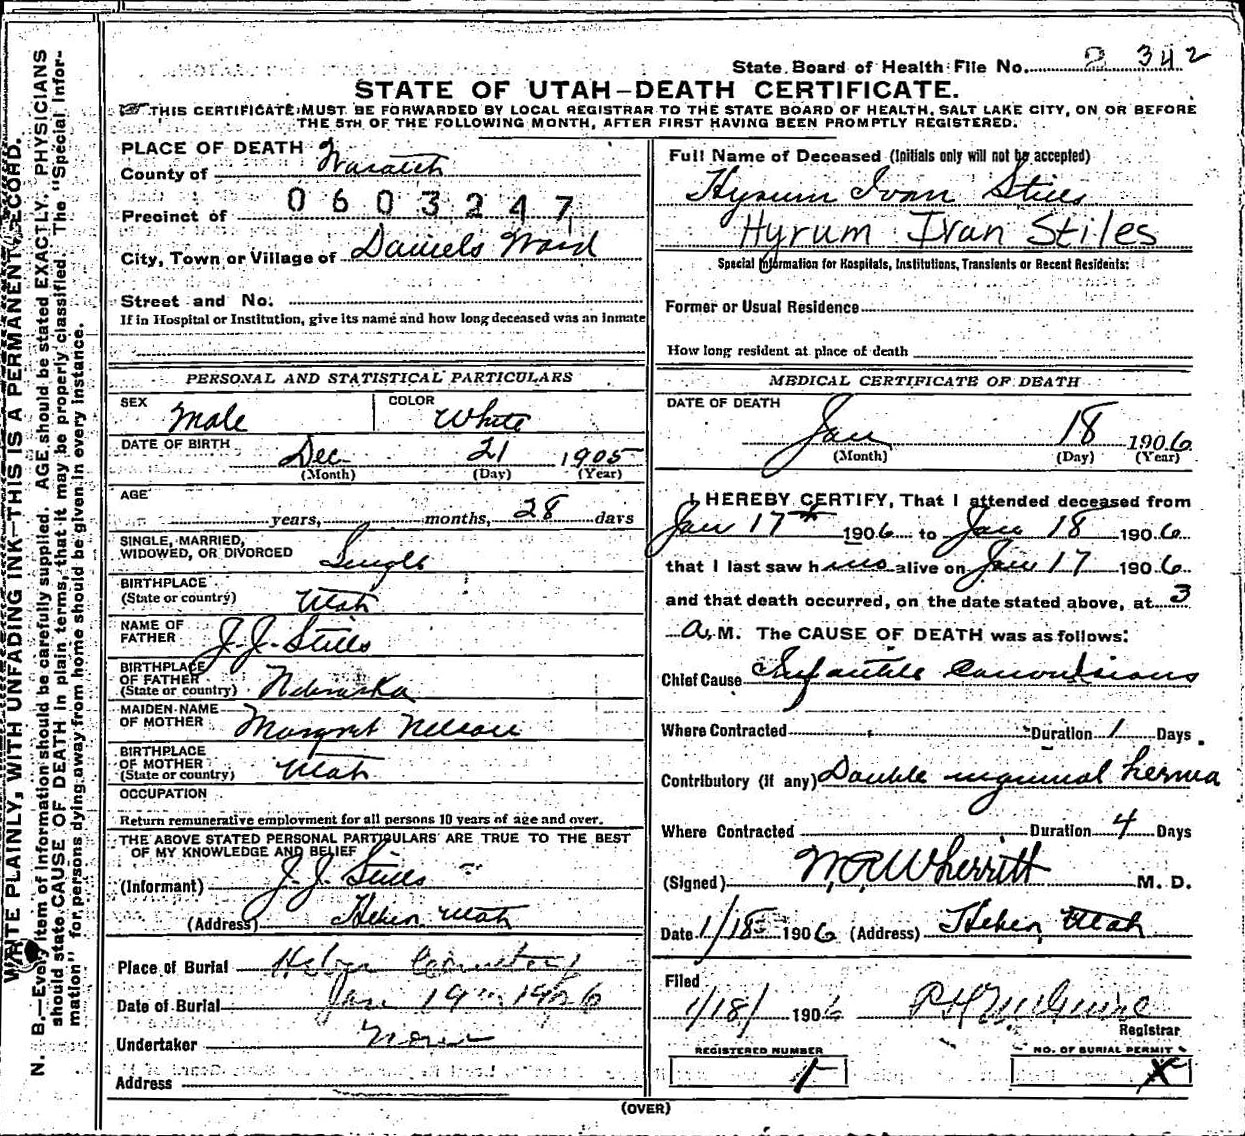 State Board of Health File No. 2 342
STATE OF UTAH—DEATH CERTIFICATE.
THIS CERTIFICATE MUST BE FORWARDED BY LOCAL REGISTRAR TO THE STATE BOARD OF HEALTH, SALT LAKE CITY, ON OR BEFORE
THE 5TH OF THE FOLLOWING MONTH, AFTER FIRST HAVING BEEN PROMPTLY REGISTERED.
PLACE OF DEATH
County of Wasatch
0603247
Precinct of
City, Town or Village of Daniels Ward
Street and No.
If in Hospital or Institution, give its name and how long deceased was an inmate
PERSONAL AND STATISTICAL PARTICULARS
SEX Male COLOR White
DATE OF BIRTH Dec 21 1905
(Month) (Day) (Year)
AGE
years, months, 28 days
SINGLE, MARRIED,
WIDOWED, OR DIVORCED Single
BIRTHPLACE
(State or country) Utah
NAME OF
FATHER J. J. Stiles
BIRTHPLACE
OF FATHER
(State or country) Nebraska
MAIDEN NAME
OF MOTHER Margret Nelson
BIRTHPLACE
OF MOTHER
(State or country) Utah
OCCUPATION
Return remunerative employment for all persons 10 years of age and over.
THE ABOVE STATED PERSONAL PARTICULARS ARE TRUE TO THE BEST
OF MY KNOWLEDGE AND BELIEF
(Informant) J. J. Stiles
(Address) Heber, Utah
Place of Burial Heber Cemetery
Date of Burial Jan 19th 1906
Undertaker None
Address
Full Name of Deceased (Initials only will not be accepted)
Hyrum Ivan Stiles
Hyrum Ivan Stiles
Special Information for Hospitals, Institutions, Transients or Recent Residents:
Former or Usual Residence
How long resident at place of death
MEDICAL CERTIFICATE OF DEATH
DATE OF DEATH
Jan 18 1906
(Month) (Day) (Year)
I HEREBY CERTIFY, That I attended deceased from
Jan 17th 1906 to Jan 18 1906
that I last saw him alive on Jan 17 1906
and that death occurred, on the date stated above, at 3
A. M. The CAUSE OF DEATH was as follows:
Chief Cause Infantile Convulsions
Where Contracted Duration 1 Days.
Contributory (if any) Double inguinal hernia
Where Contracted Duration 4 Days
(Signed) W.R. Wherritt M. D.
Date 1/18 1906 (Address) Heber, Utah
Filed
1/18/ 1906 R H McGuire
Registrar
REGISTERED NUMBER NO. OF BURIAL PERMIT
1 X
(OVER)
WRITE PLAINLY, WITH UNFADING INK—THIS IS A PERMANENT RECORD.
N. B.—Every item of information should be carefully supplied. AGE should be stated EXACTLY. PHYSICIANS
should state CAUSE OF DEATH in plain terms, that it may be properly classified. The "Special Infor-
mation" for persons dying away from home should be given in every instance.